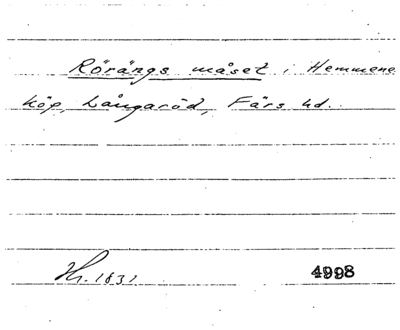 Rörängs måset i Hemmene
köp, Långaröd, Färs hd.
Hr. 1631 4998